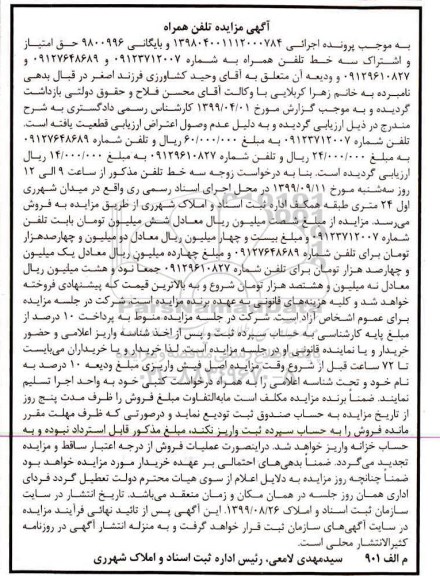 آگهی مزایده تلفن همراه
به موجب پرونده اجرائی ۱۳۹۸۰۴۰۰۱۱۱۲۰۰۰۷۸۴ و بایگانی ۹۸۰۰۹۹۶ حق امتیاز
و اشتراک سه خط تلفن همراه به شماره ۰۹۱۲۳۷۱۲۰۰۷ و ۰۹۱۲۷۶۴۸۶۸۹ و
۰۹۱۲۹۶۱۰۸۲۷ و ودیعه آن متعلق به آقای وحید کشاورزی فرزند اصغر در قبال بدهی
نامبرده به خانم زهرا کربلایی با وکالت آقای محسن فلاح و حقوق دولتی بازداشت
گردیده و به موجب گزارش مورخ ۱۳۹۹/۰۴/۰۱ کارشناس رسمی دادگستری به شرح
مندرج در ذیل ارزیابی گردیده و به دلیل عدم وصول اعتراض ارزیابی قطعیت یافته است.
تلفن شماره ۰۹۱۲۳۷۱۲۰۰۷ به مبلغ ۶۰/۰۰۰/۰۰۰ ریال و تلفن شماره ۰۹۱۲۷۶۴۸۶۸۹
به مبلغ ۲۴/۰۰۰/۰۰۰ ریال و تلفن شماره ۰۹۱۲۹۶۱۰۸۲۷ به مبلغ ۱۴/۰۰۰/۰۰۰ ریال
ارزیابی گردیده است. بنا به درخواست زوجه سه خط تلفن مذکور از ساعت ۹ الی ۱۲
روز سه‌شنبه مورخ ۱۳۹۹/۰۹/۱۱ در محل اجرای اسناد رسمی ری واقع در میدان شهرری
اول ۲۴ متری طبقه همکف اداره ثبت اسناد و املاک شهرری از طریق مزایده به فروش
می‌رسد. مزایده از مبلغ شصت میلیون ریال معادل شش میلیون تومان بابت تلفن
شماره ۰۹۱۲۳۷۱۲۰۰۷ و مبلغ بیست و چهار میلیون ریال معادل دو میلیون و چهارصدهزار
تومان برای تلفن شماره ۰۹۱۲۷۶۴۸۶۸۹ و مبلغ چهارده میلیون ریال معادل یک میلیون
و چهارصد هزار تومان برای تلفن شماره ۰۹۱۲۹۶۱۰۸۲۷ جمعا نود و هشت میلیون ریال
معادل نه میلیون و هشتصد هزار تومان شروع و به بالاترین قیمت که پیشنهادی فروخته
خواهد شد و کلیه هزینه‌های قانونی به عهده برنده مزایده است شرکت در جلسه مزایده
برای عموم اشخاص آزاد است. شرکت در جلسه مزایده منوط به پرداخت ۱۰ درصد از
مبلغ پایه کارشناسی به حساب سپرده ثبت و پس از اخذ شناسه واریز اعلامی و حضور
خریدار و یا نماینده قانونی او در جلسه مزایده است. لذا خریدار و یا خریداران می‌بایست
تا ۷۲ ساعت قبل از شروع وقت مزایده اصل فیش واریزی مبلغ ودیعه ۱۰ درصد به
نام خود و تحت شناسه اعلامی را به همراه درخواست کتبی خود به واحد اجرا تسلیم
نمایند. ضمناً برنده مزایده مکلف است مابه‌التفاوت مبلغ فروش را ظرف مدت پنج روز
از تاریخ مزایده به حساب صندوق ثبت تودیع نماید و درصورتی که ظرف مهلت مقرر
مانده فروش را به حساب سپرده ثبت واریز نکند، مبلغ مذکور قابل استرداد نبوده و به
حساب خزانه واریز خواهد شد. دراینصورت عملیات فروش از درجه اعتبار ساقط و مزایده
تجدید می‌گردد. ضمناً بدهی‌های احتمالی بر عهده خریدار مورد مزایده خواهد بود
ضمناً چنانچه روز مزایده به دلایل اعلام از سوی هیات محترم دولت تعطیل گردد فردای
اداری همان روز جلسه در همان مکان و زمان منعقد می‌باشد. تاریخ انتشار در سایت
سازمان ثبت اسناد و املاک ۱۳۹۹/۰۸/۲۶. این آگهی پس از تائید نهائی فرآیند مزایده
در سایت آگهی‌های سازمان ثبت قرار خواهد گرفت و به منزله انتشار آگهی در روزنامه
کثیرالانتشار محلی است.
م الف ۹۰۱ سیدمهدی لامعی، رئیس اداره ثبت اسناد و املاک شهرری